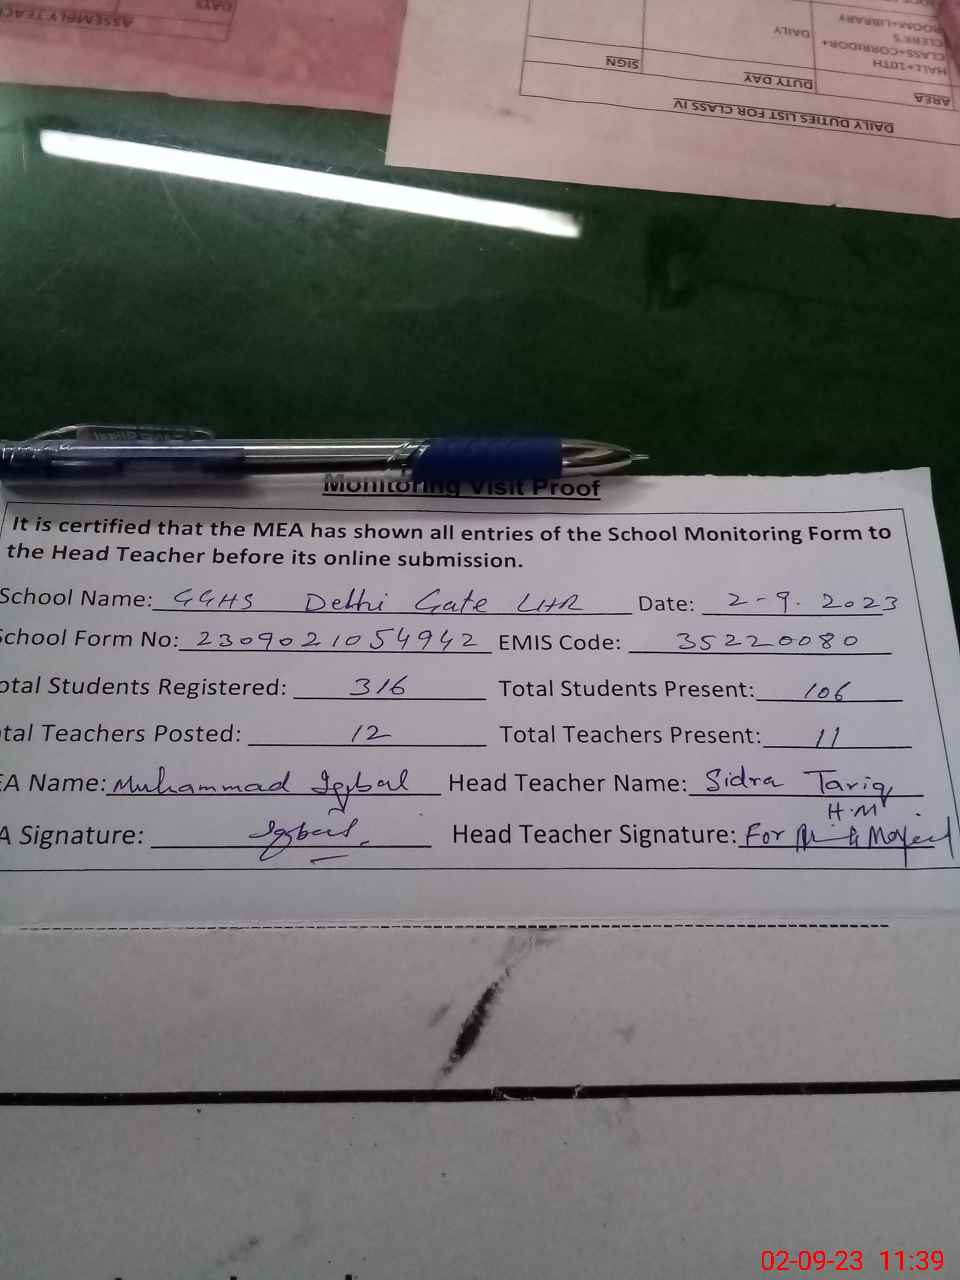 ASSEMBLY TEAC
DAYS
DAILY DUTIES LIST FOR CLASS IV
AREA DUTY DAY SIGN
HALL+10TH
CLASS+CORRIDOR+
CLERK'S
ROOM+LIBRARY
DAILY
Monitoring Visit Proof
It is certified that the MEA has shown all entries of the School Monitoring Form to
the Head Teacher before its online submission.
School Name: GGHS Delhi Gate LHR Date: 2-9-2023
School Form No: 2309021054942 EMIS Code: 35220080
otal Students Registered: 316 Total Students Present: 106
tal Teachers Posted: 12 Total Teachers Present: 11
EA Name: Muhammad Iqbal Head Teacher Name: Sidra Tariq
H.M
A Signature: Iqbal Head Teacher Signature: For Majeed
02-09-23 11:39